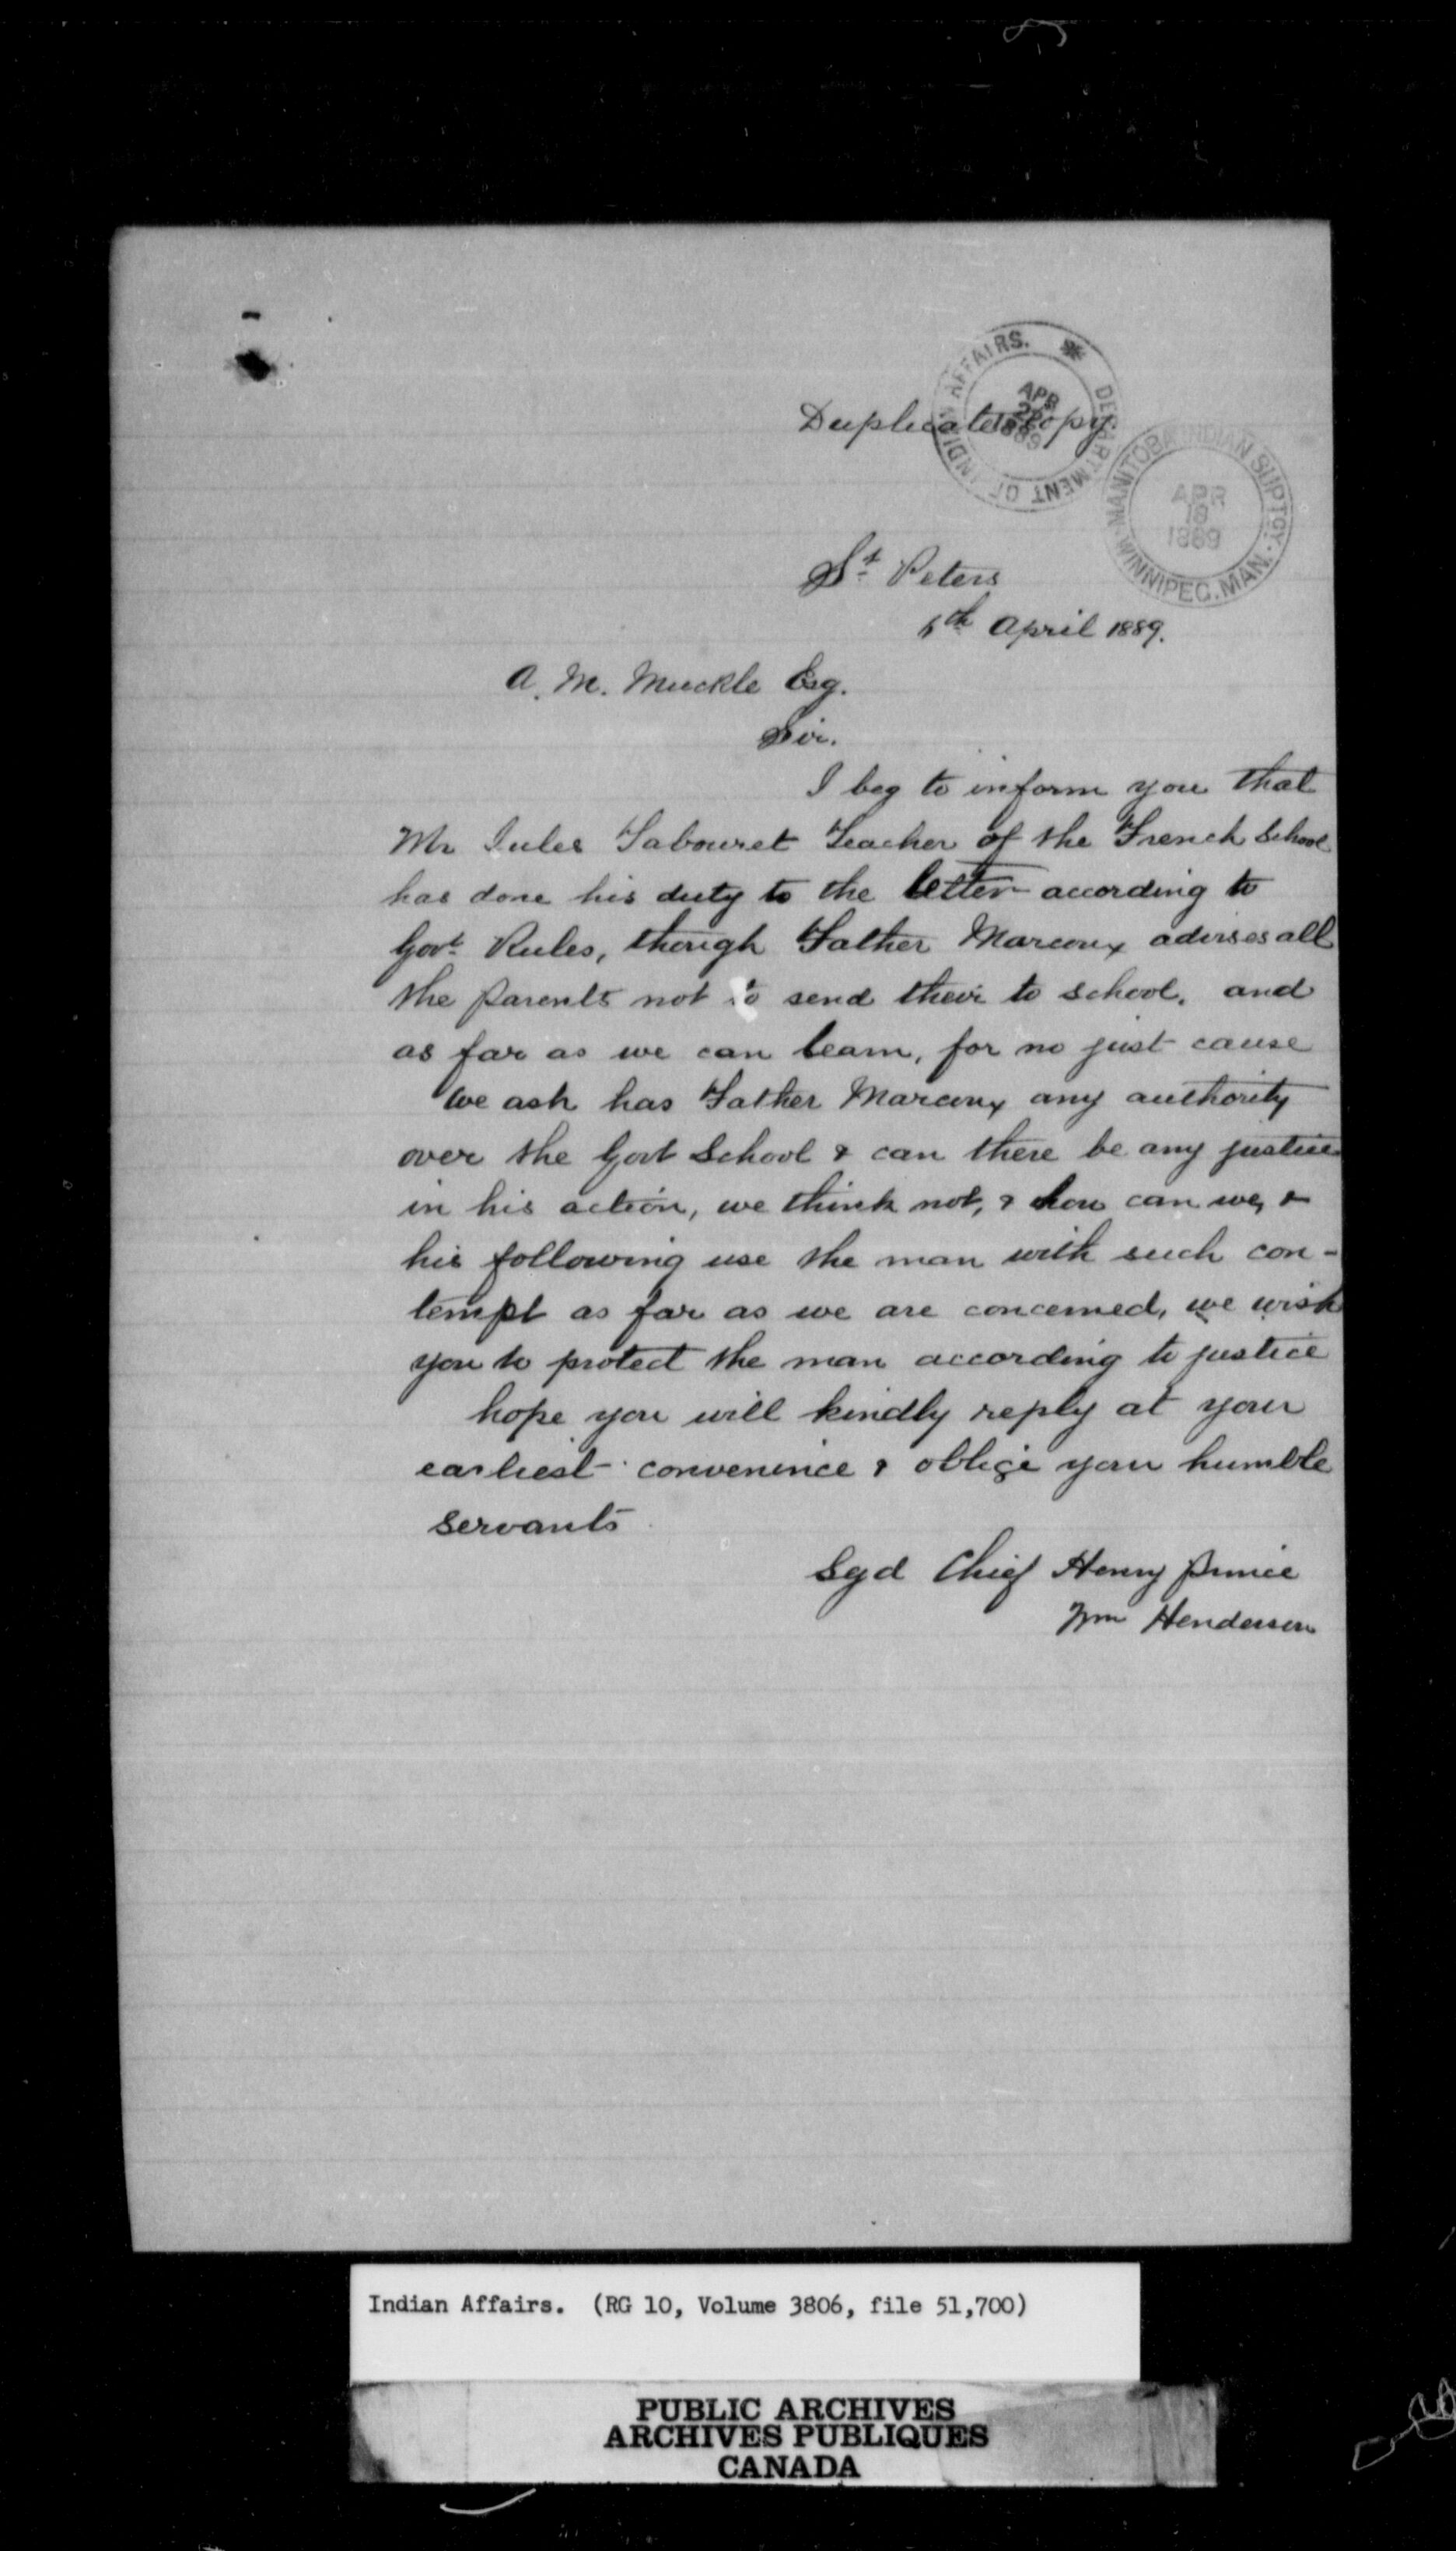 DEPARTMENT OF INDIAN AFFAIRS.
APR
1889
Duplicate Copy
MANITOBA INDIAN SUPTCY.
APR
18
1889
WINNIPEG. MAN.
St Peters
April 1889.
A. M. Muckle Esq.
Sir.
I beg to inform you that
Mr Jules Tabouret Teacher of the French School
has done his duty to the letter according to
Govt Rules, though Father Marcoux advises all
the parents not to send their to school, and
as far as we can learn, for no just cause
We ask has Father Marcoux any authority
over the Govt School & can there be any justice
in his action, we think not, & how can we, &
his following use the man with such con-
tempt as far as we are concerned, we wish
you to protect the man according to justice
hope you will kindly reply at your
earliest convenince & oblige your humble
servants
Sgd Chief Henry Prince
Wm Henderson
Indian Affairs. (RG 10, Volume 3806, file 51,700)
PUBLIC ARCHIVES
ARCHIVES PUBLIQUES
CANADA